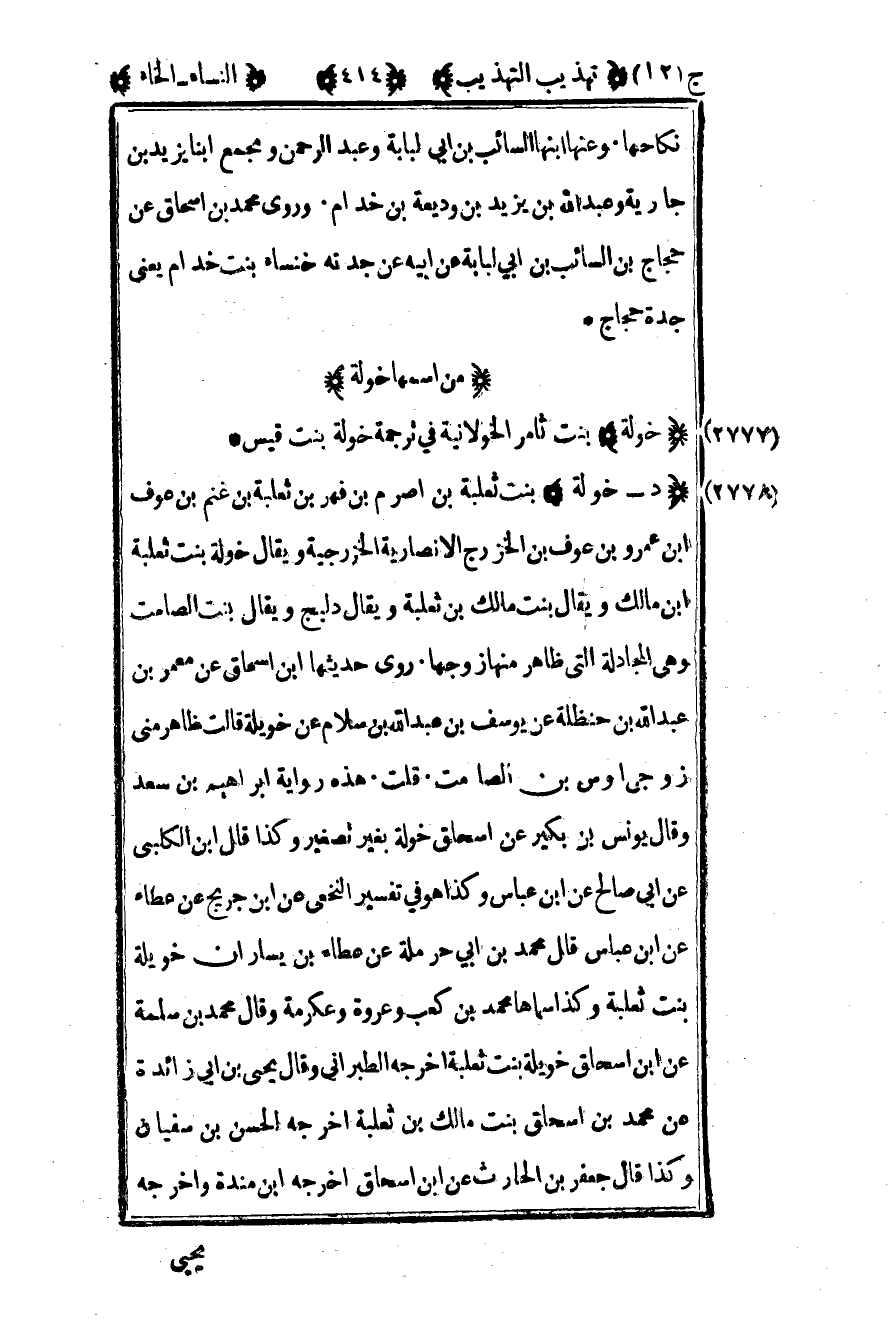 ج (١٢) ﴿ تهذيب التهذيب ﴾ ﴿ ٤١٤ ﴾ ﴿ النساء ـ الخاء ﴾
نكاحها · وعنها ابنها السائب بن ابي لبابة وعبد الرحمن ومجمع ابنا يزيد بن
جارية وعبد الله بن يزيد بن وديعة بن خدام · وروى محمد بن اسحاق عن
حجاج بن السائب بن ابي لبابة عن ابيه عن جدته خنساء بنت خدام يعنى
جدة حجاج •
﴿ من اسمها خولة ﴾
(٢٧٧٧) ﴿ خولة ﴾ بنت ثامر الخولانية في ترجمة خولة بنت قيس •
(٢٧٧٨) ﴿ د ـ خولة ﴾ بنت ثعلبة بن اصرم بن فهر بن ثعلبة بن غنم بن عوف
ابن عمرو بن عوف بن الخزرج الانصارية الخزرجية ويقال خولة بنت ثعلبة
ابن مالك ويقال بنت مالك بن ثعلبة ويقال دليج ويقال بنت الصامت
وهى المجادلة التى ظاهر منها زوجها · روى حديثها ابن اسحاق عن معمر بن
عبد الله بن حنظلة عن يوسف بن عبد الله بن سلام عن خويلة قالت ظاهر منى
زوجى اوس بن الصامت · قلت · هذه رواية ابراهيم بن سعد
وقال يونس بن بكير عن اسحاق خولة بغير تصغير وكذا قال ابن الكلبى
عن ابي صالح عن ابن عباس وكذا هو في تفسير النخعى عن ابن جريج عن عطاء
عن ابن عباس قال محمد بن ابي حرملة عن عطاء بن يسار ان خويلة
بنت ثعلبة وكذا سماها محمد بن كعب وعروة وعكرمة وقال محمد بن سلمة
عن ابن اسحاق خويلة بنت ثعلبة اخرجه الطبراني وقال يحيى بن ابي زائدة
عن محمد بن اسحاق بنت مالك بن ثعلبة اخرجه الحسن بن سفيان
وكذا قال جعفر بن الحارث عن ابن اسحاق اخرجه ابن مندة واخرجه
يحيى